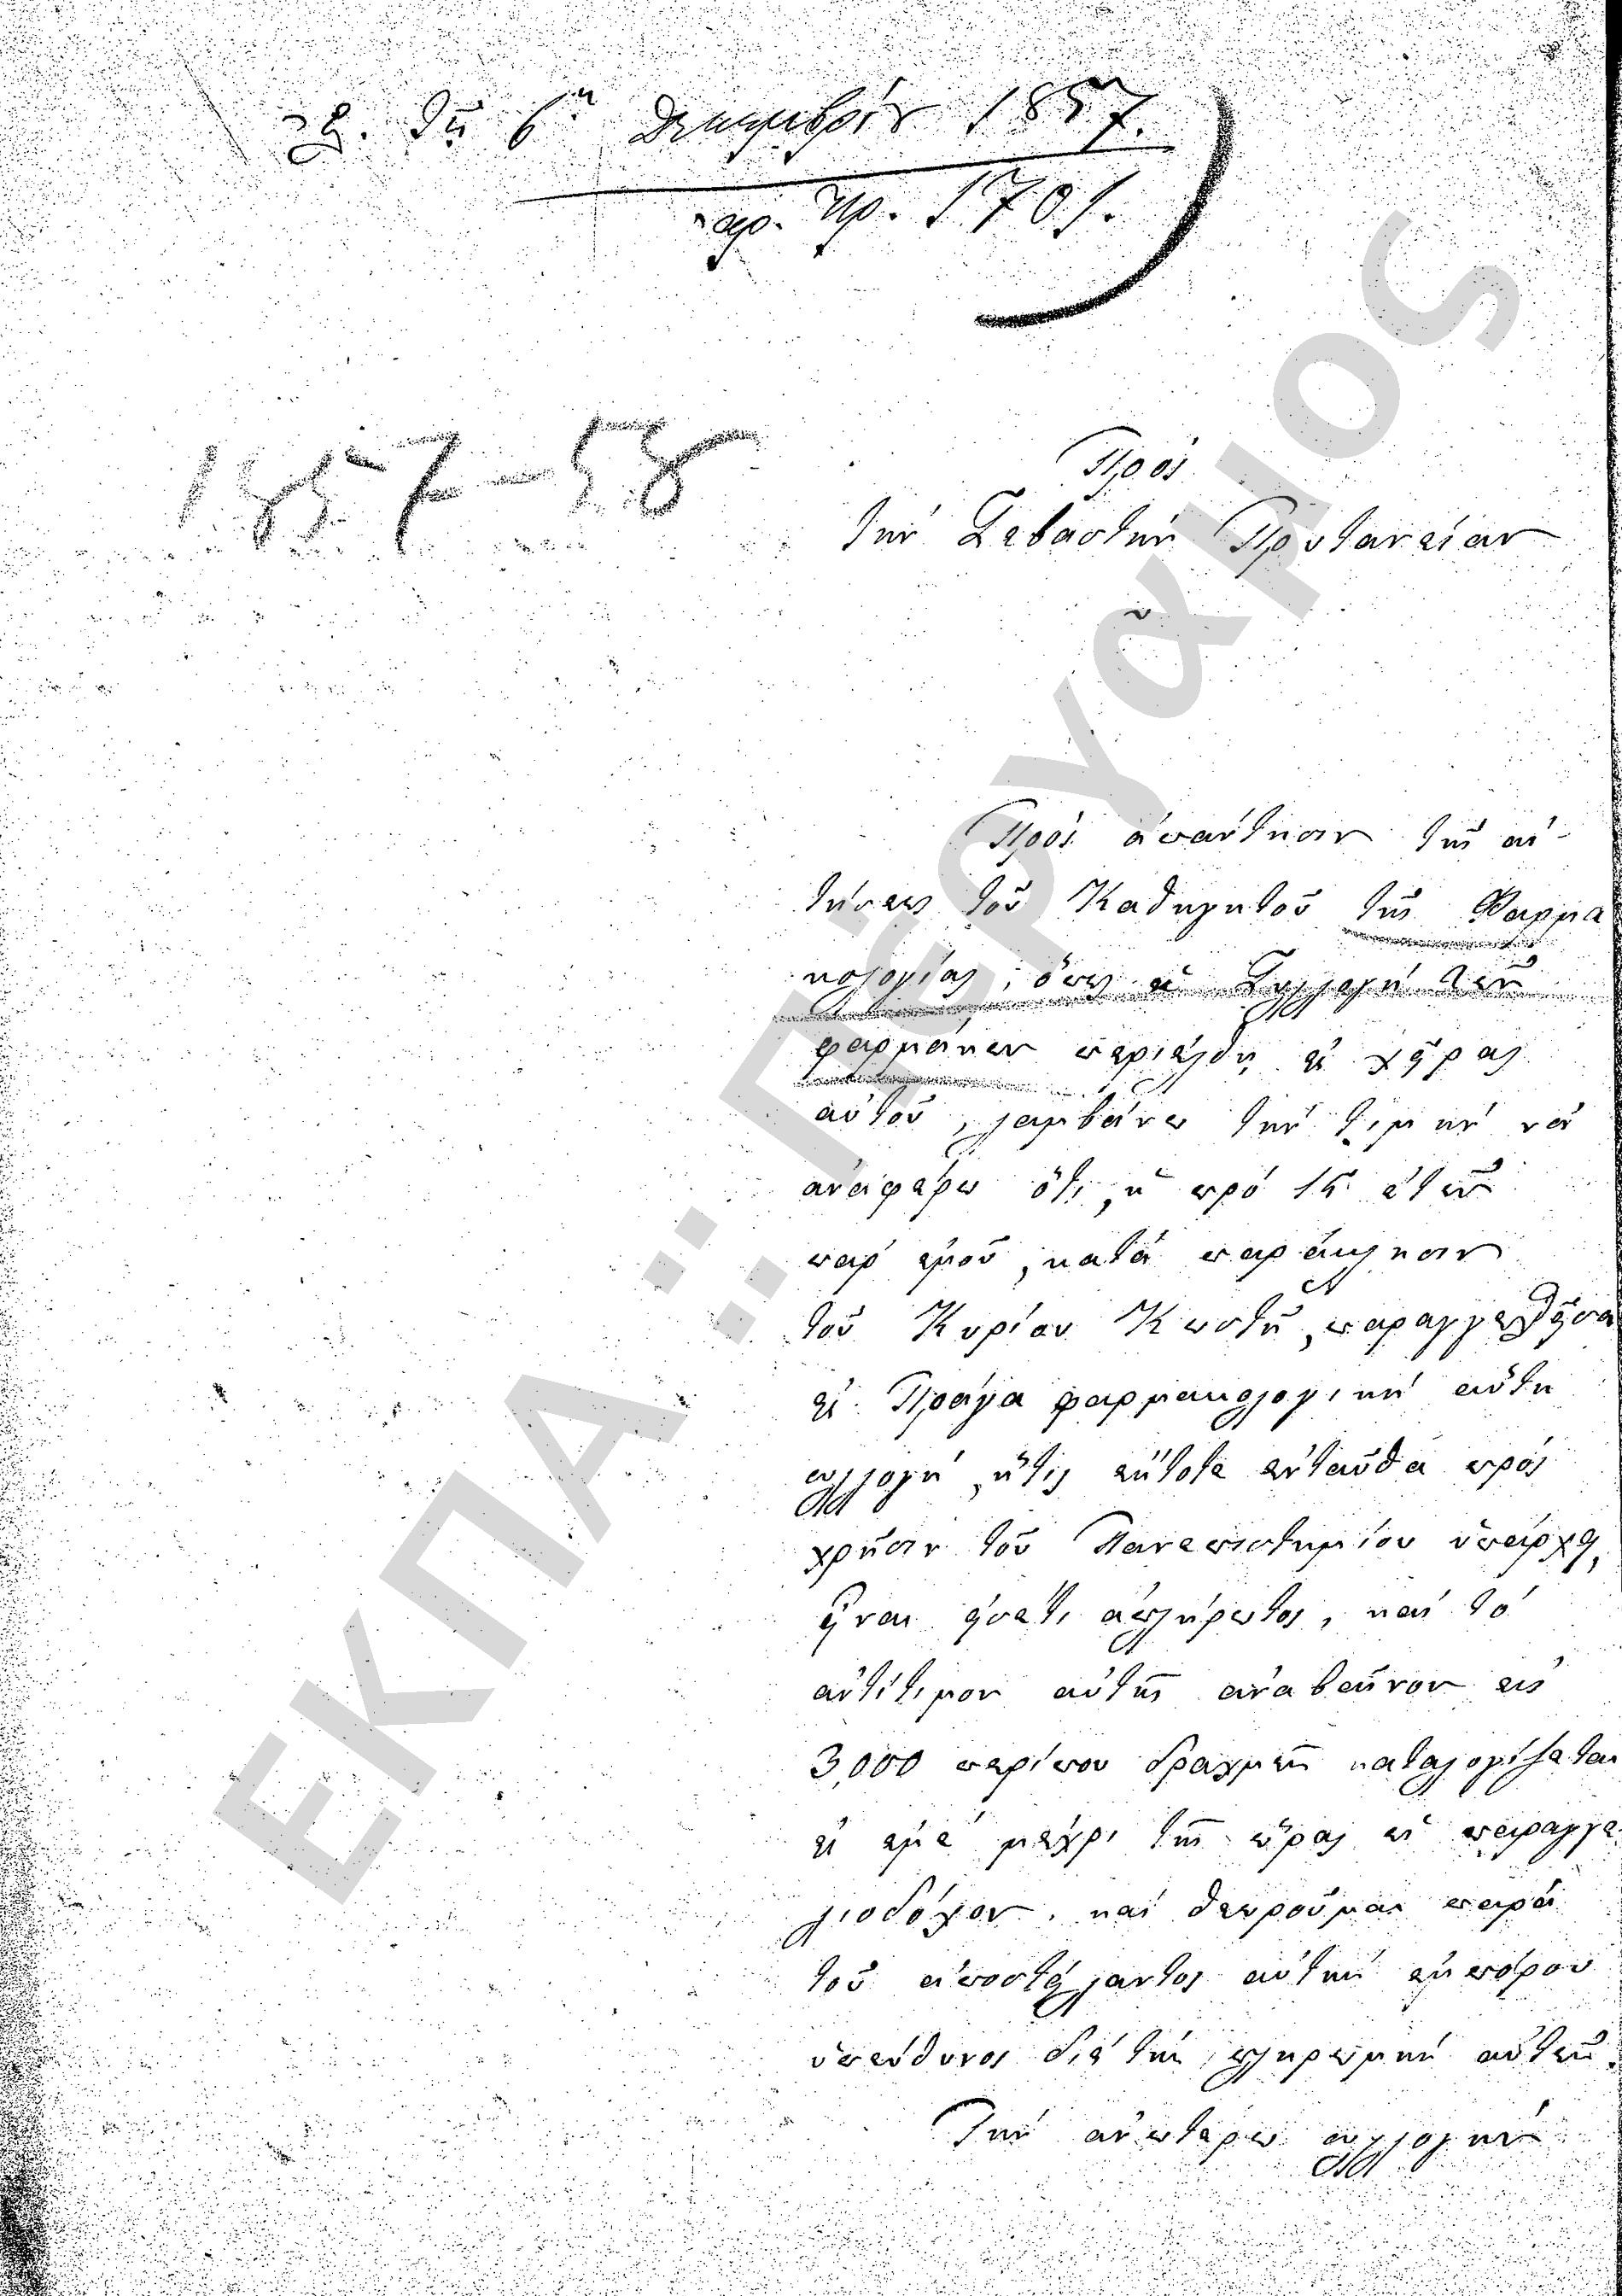 τῇ 6ῃ Δεκεμβρίου 1857.
ἀρ. πρ. 1701.
1857-58
Πρὸς
τὴν Σεβαστὴν Πρυτανείαν
Πρὸς ἀπάντησιν τῆς αἰ-
τήσεως τοῦ Καθηγητοῦ τῆς Φαρμα
κολογίας, ὅπως ἡ Συλλογὴ τῶν
φαρμάκων περιέλθῃ εἰς χεῖρας
αὐτοῦ, λαμβάνω τὴν τιμὴν νὰ
ἀναφέρω ὅτι, ἡ πρὸ 15 ἐτῶν
παρ' ἐμοῦ, κατὰ παράκλησιν
τοῦ Κυρίου Κωστῆ, παραγγελθεῖσα
εἰς Πράγα φαρμακολογικὴ αὕτη
συλλογὴ, ἥτις ἔκτοτε ἐνταῦθα πρὸς
χρῆσιν τοῦ Πανεπιστημίου ὑπάρχει,
εἶναι εἰσέτι ἀπλήρωτος, καὶ τὸ
ἀντίτιμον αὐτῆς ἀναβαῖνον εἰς
3,000 περίπου δραχμῶν καταλογίζεται
εἰς ἐμὲ μέχρι τῆς ὥρας ὡς παραγγε
λιοδόχον, καὶ θεωροῦμαι παρὰ
τοῦ ἀποστείλαντος αὐτὴν ἐμπόρου
ὑπεύθυνος διὰ τὴν πληρωμὴν αὐτῶν.
Τὴν ἀνωτέρω συλλογὴν
ΕΚΠΑ :: Πέργαμος